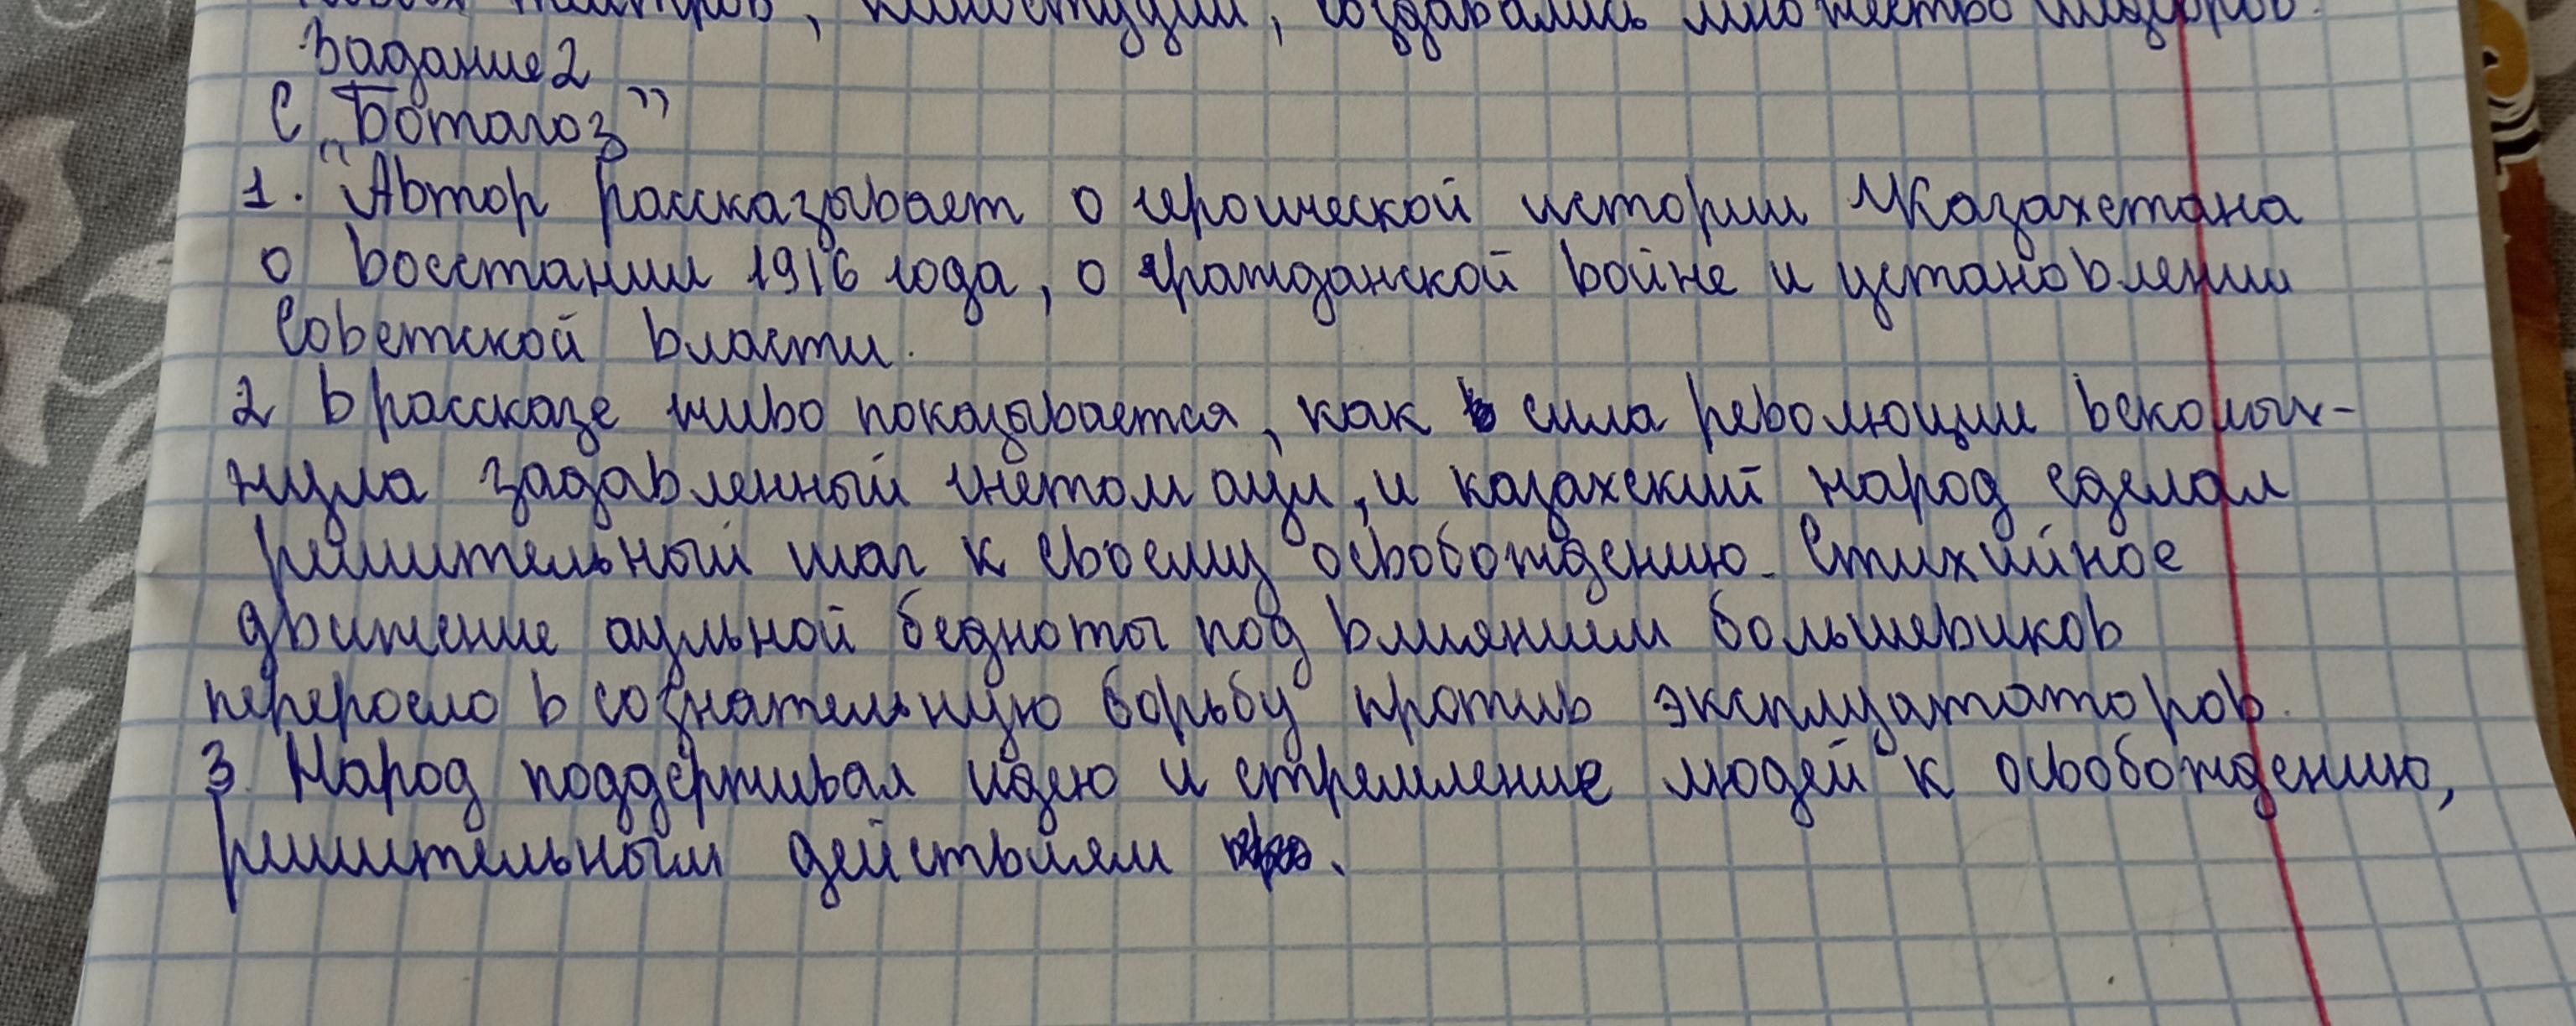 новых театров, киностудий, создавались множество шедевров.
Задание 2
С „Ботагоз”
1. Автор рассказывает о героической истории Казахстана
о восстании 1916 года, о гражданской войне и установлении
Советской власти.
2 В рассказе живо показывается, как сила революции всколых-
нула задавленный гнётом аул, и казахский народ сделал
решительный шаг к своему освобождению. Стихийное
движение аульной бедноты под влиянием большевиков
переросло в сознательную борьбу против эксплуататоров.
3. Народ поддерживал идею и стремление людей к освобождению,
решительным действиям.